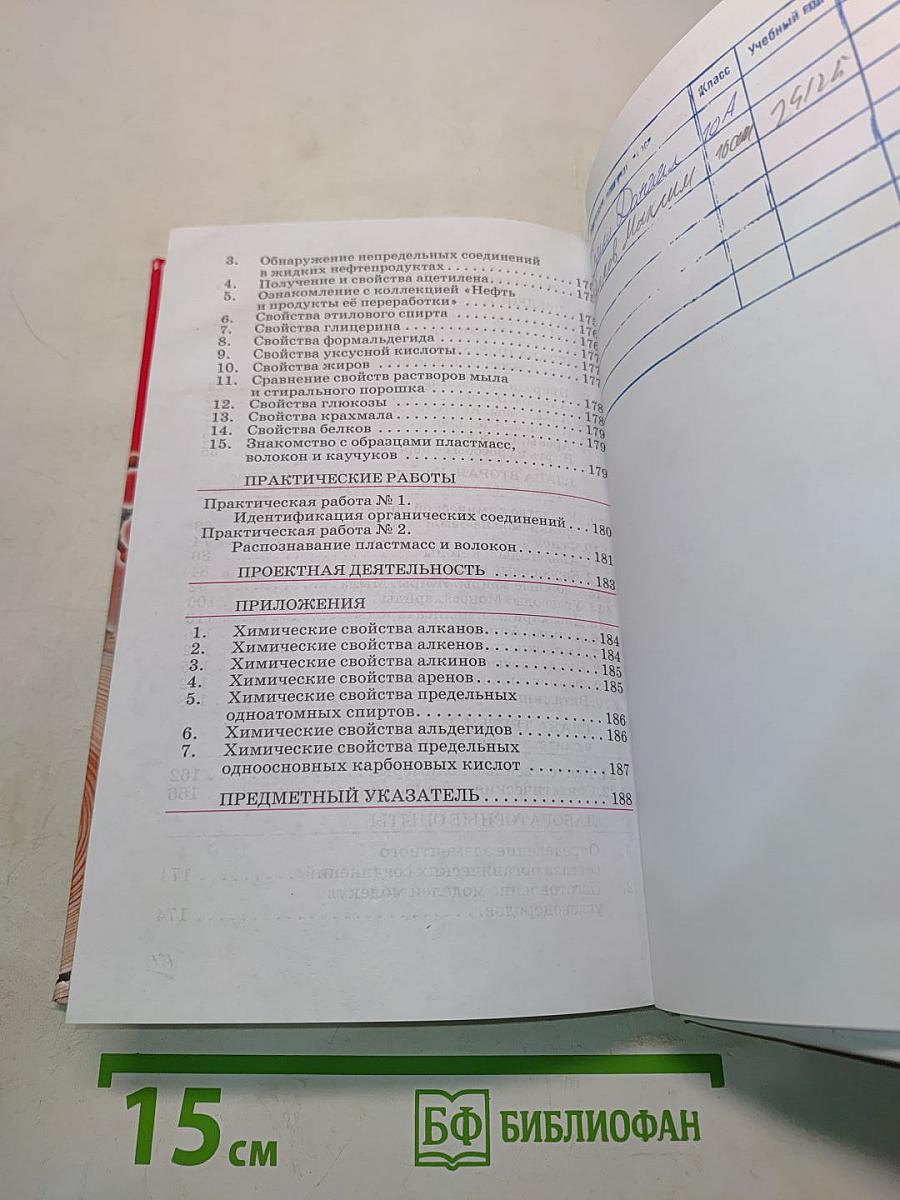 3. Обнаружение непредельных соединений
в жидких нефтепродуктах
4. Получение и свойства ацетилена
5. Ознакомление с коллекцией «Нефть
и продукты её переработки» 175
6. Свойства этилового спирта
7. Свойства глицерина 176
8. Свойства формальдегида 176
9. Свойства уксусной кислоты 177
10. Свойства жиров 177
11. Сравнение свойств растворов мыла 177
и стирального порошка
12. Свойства глюкозы 178
13. Свойства крахмала 178
14. Свойства белков 179
15. Знакомство с образцами пластмасс, 179
волокон и каучуков 179
ПРАКТИЧЕСКИЕ РАБОТЫ
Практическая работа № 1.
Идентификация органических соединений ... 180
Практическая работа № 2.
Распознавание пластмасс и волокон ......... 181
ПРОЕКТНАЯ ДЕЯТЕЛЬНОСТЬ ............ 183
ПРИЛОЖЕНИЯ
1. Химические свойства алканов ............ 184
2. Химические свойства алкенов ............ 184
3. Химические свойства алкинов ............ 185
4. Химические свойства аренов ............ 185
5. Химические свойства предельных
одноатомных спиртов ............ 186
6. Химические свойства альдегидов ............ 186
7. Химические свойства предельных
одноосновных карбоновых кислот ......... 187
ПРЕДМЕТНЫЙ УКАЗАТЕЛЬ ............ 188
Класс
Учебный
10А
Максим
24/25
15 см
БФ БИБЛИОФАН